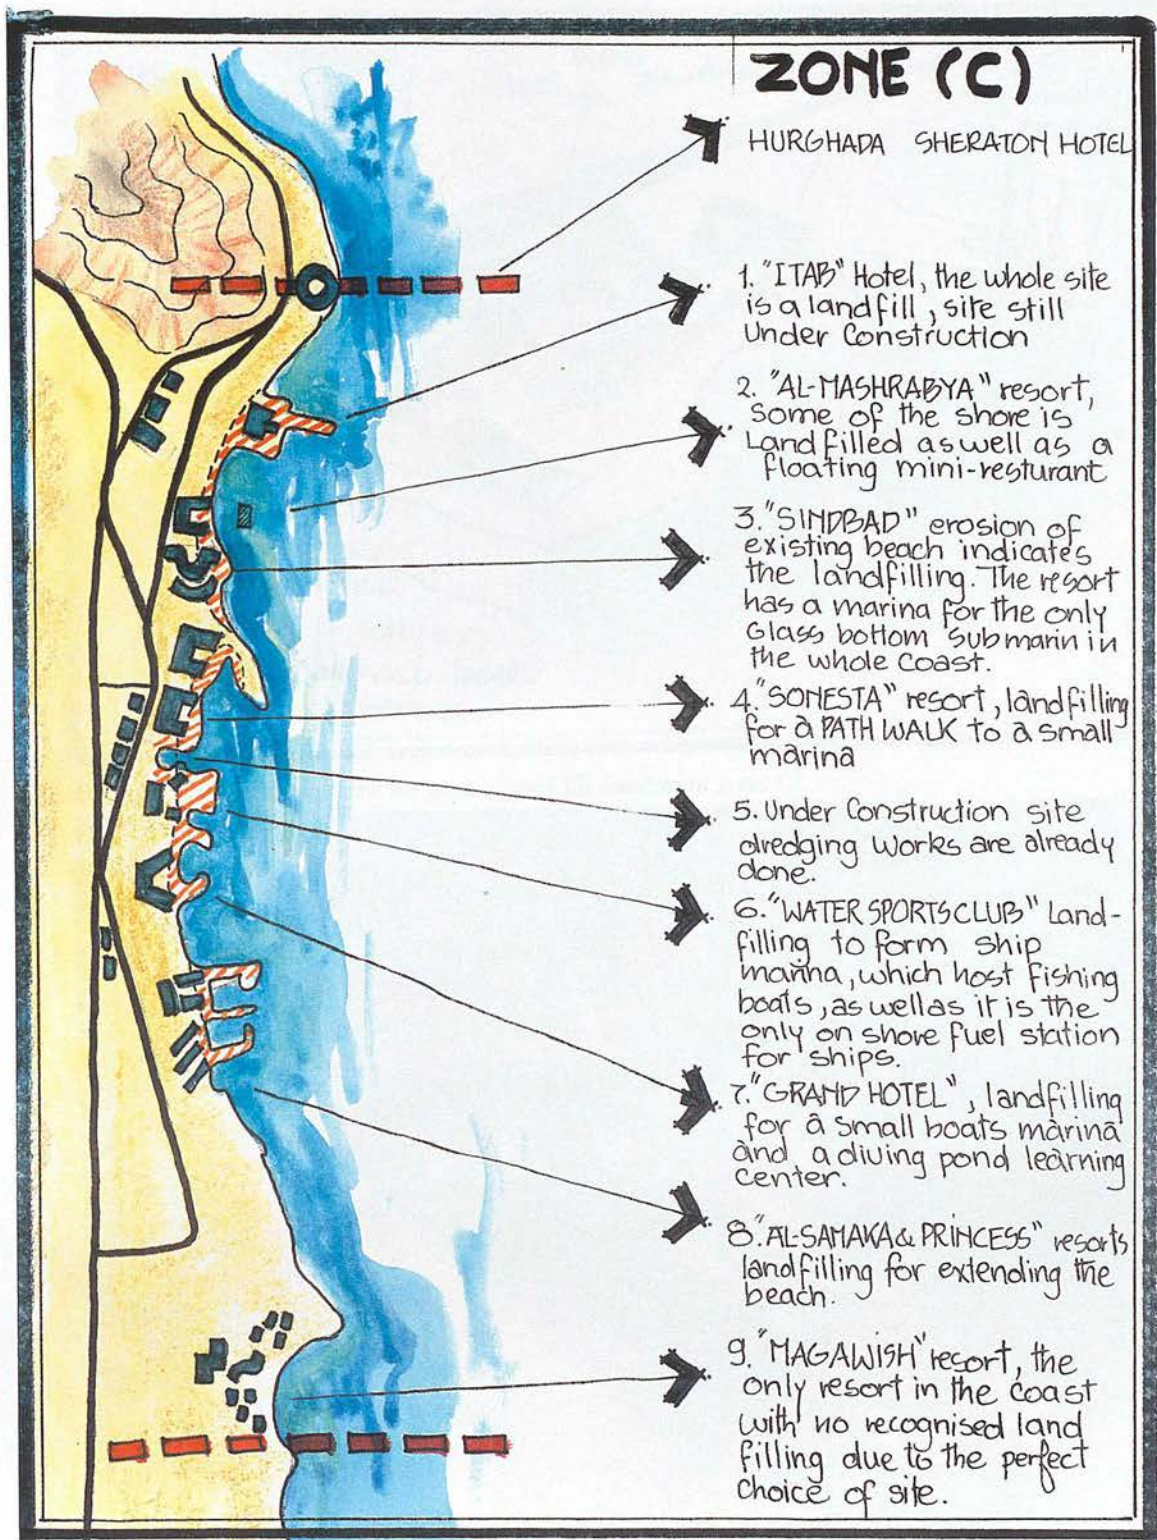 ZONE (C)
HURGHADA SHERATON HOTEL
1. "ITAB" Hotel, the whole site
is a landfill, site still
Under Construction
2. "AL-MASHRABYA" resort,
Some of the shore is
Landfilled as well as a
floating mini-resturant
3. "SINDBAD" erosion of
existing beach indicates
the landfilling. The resort
has a marina for the only
Glass bottom submarin in
the whole coast.
4. "SONESTA" resort, landfilling
for a PATH WALK to a small
marina
5. Under Construction site
dredging works are already
done.
6. "WATER SPORTS CLUB" Land-
filling to form ship
marina, which host fishing
boats, as well as it is the
only on shore fuel station
for ships.
7. "GRAND HOTEL", landfilling
for a small boats marina
and a diving pond learning
center.
8. "AL-SAMAKA & PRINCESS" resorts
landfilling for extending the
beach.
9. "MAGAWISH" resort, the
only resort in the coast
with no recognised land
filling due to the perfect
choice of site.